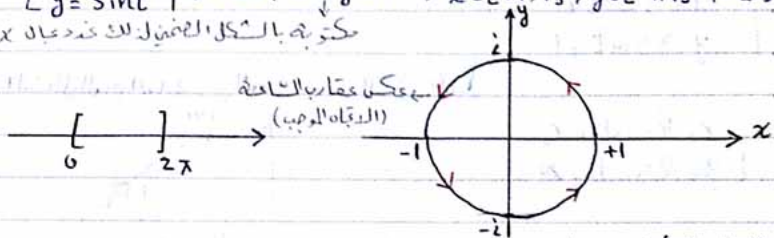 y = sint
مكتوبة بالشكل الضمني لذلك نحدد مجال x
y
i
عكس عقارب الساعة
(الاتجاه الموجب)
0
2π
-1
+1
x
-i